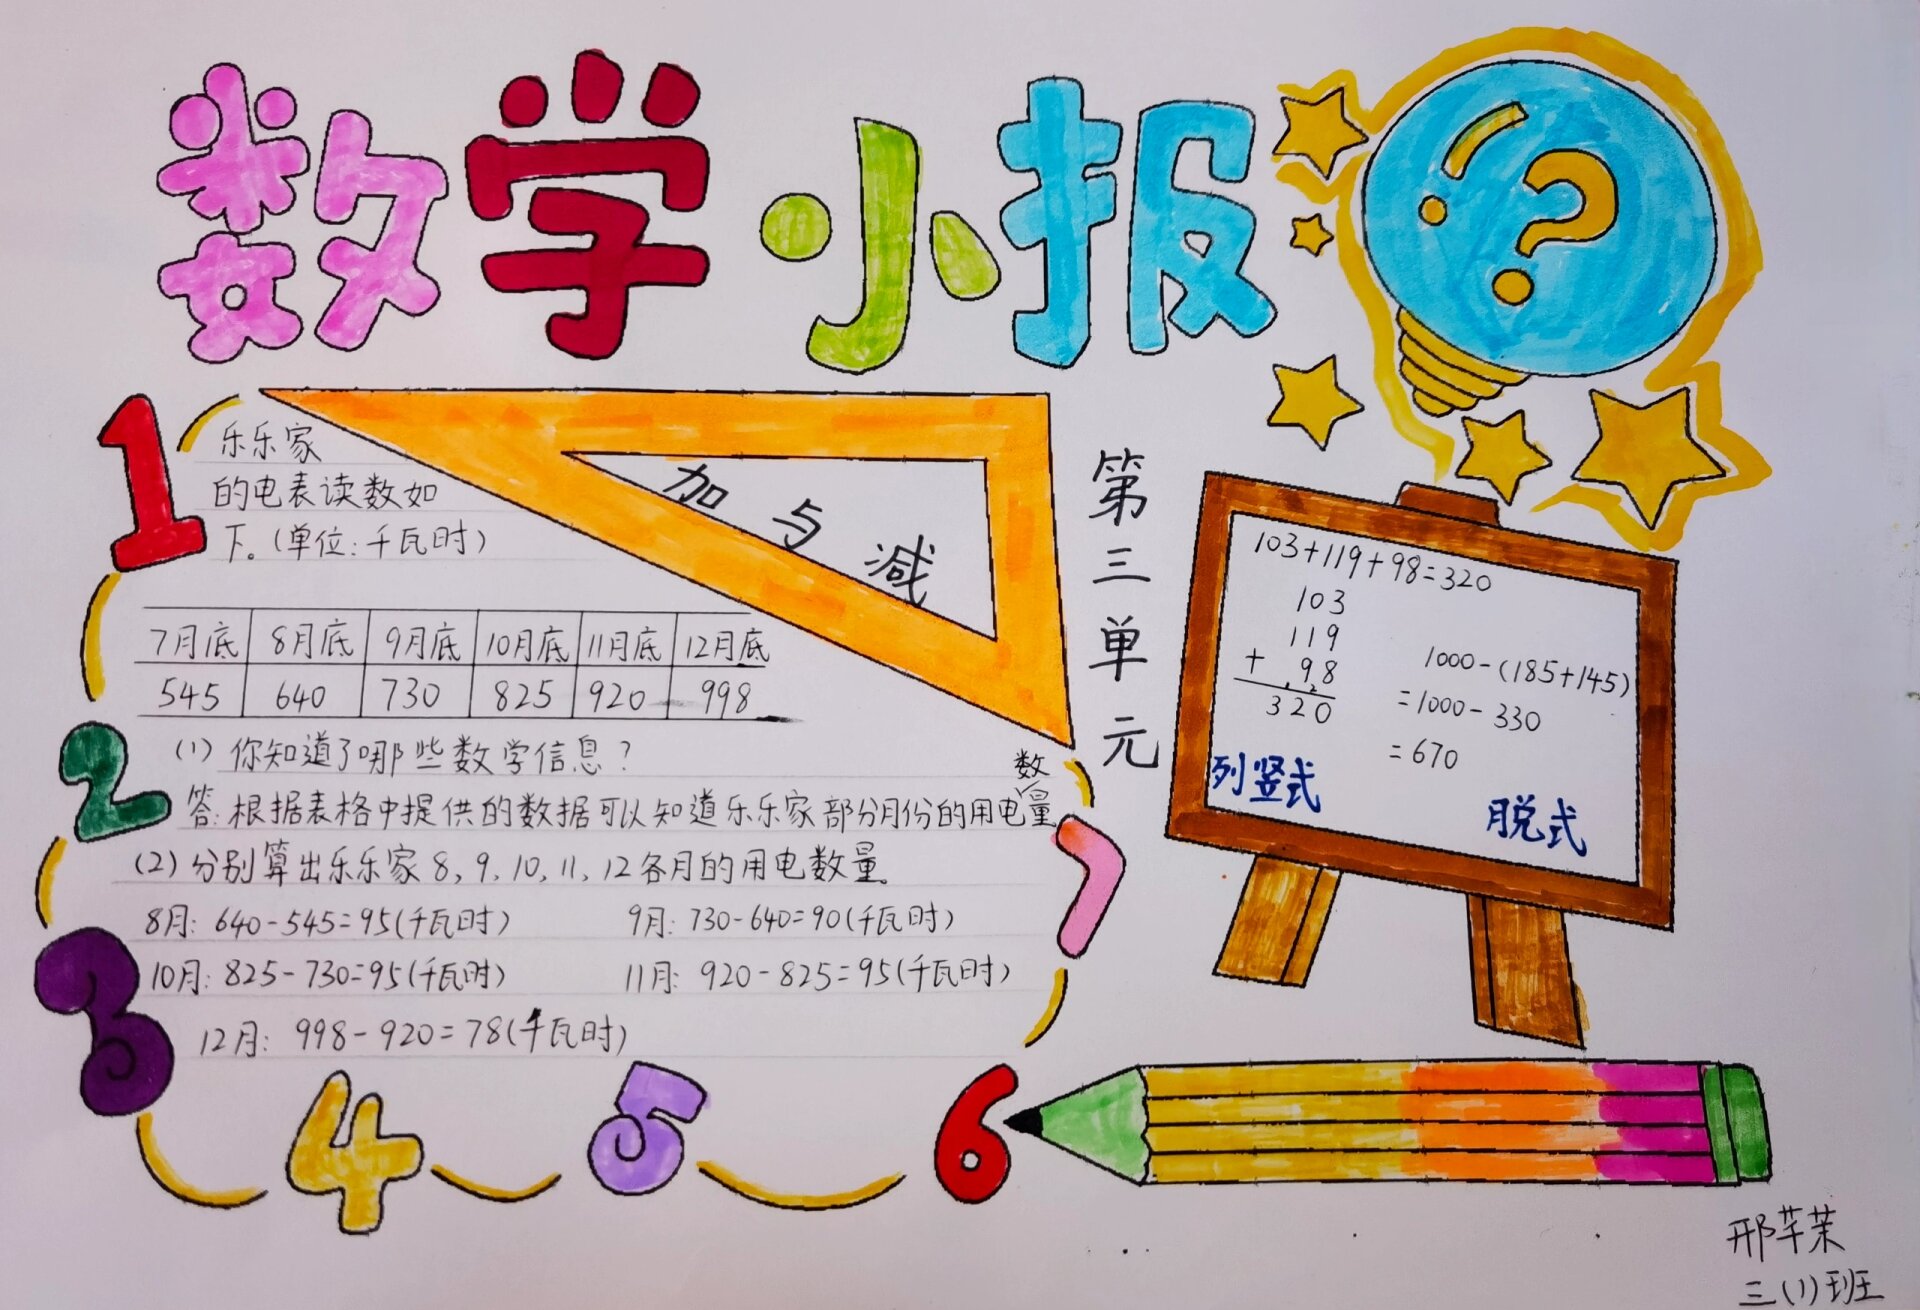 数学小报
1
乐乐家
的电表读数如
下。(单位:千瓦时)
加与减
第三单元
7月底 8月底 9月底 10月底 11月底 12月底
545 640 730 825 920 998
2
(1) 你知道了哪些数学信息?
答:根据表格中提供的数据可以知道乐乐家部分月份的用电数量
(2) 分别算出乐乐家8, 9, 10, 11, 12各月的用电数量。
8月: 640-545=95(千瓦时) 9月: 730-640=90(千瓦时)
3
10月: 825-730=95(千瓦时) 11月: 920-825=95(千瓦时)
12月: 998-920=78(千瓦时)
4
5
6
7
?
103+119+98=320
103
119
+ 98
2
320
列竖式
1000-(185+145)
=1000-330
=670
脱式
邢芊茉
三(1)班